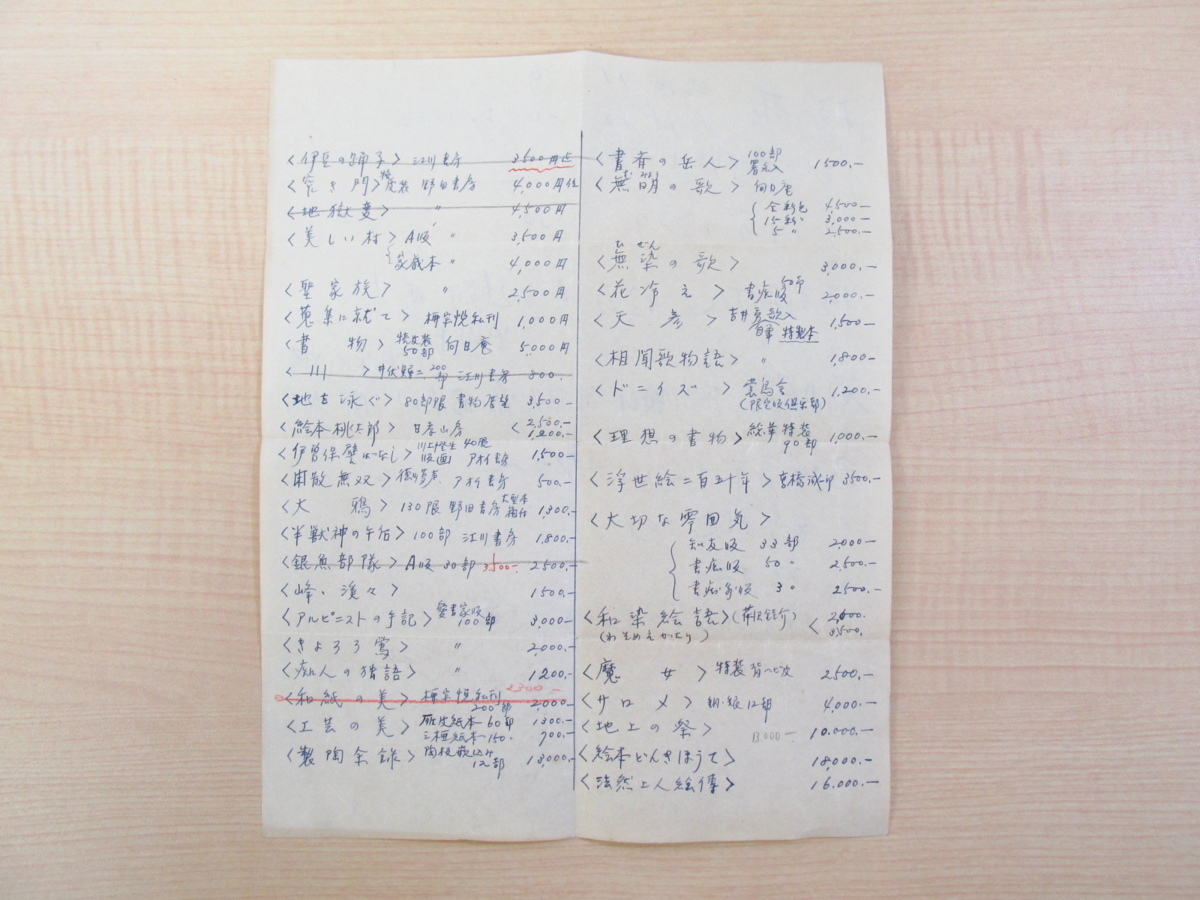 〈伊豆の踊子〉 江川書房 3500円位
〈窄き門〉特革装 野田書房 4,000円位
〈地獄変〉 〃 4,500円
〈美しい村〉A版 〃 3,500円
家蔵本 〃 4,000円
〈聖家族〉 〃 2,500円
〈蒐集に就て〉 柳宗悦私刊 1,000円
〈書物〉 特皮装 50部 向日庵 5,000円
〈川〉 井伏鱒二 200部 江川書房 800.
〈地を泳ぐ〉 80部限 書物展望 3,500.-
〈絵本桃太郎〉 日孝山房 < 2,500.- 1,200.-
〈伊曽保壁ばなし〉 川上澄生 40版 版画 アオイ書房 1,500-
〈閑散無双〉 アオイ書房 500.-
〈大鴉〉 130限 野田書房 大型本 1,300.-
〈半獣神の午后〉 100部 江川書房 1,800.-
〈銀魚部隊〉 A版 30部 3,500- 2500.-
〈峰・渓々〉 1500.-
〈アルピニストの手記〉 愛書家版 100部 3,000-
〈きよろろ鶯〉 〃 2,000.-
〈病人の独語〉 〃 1200.-
〈和紙の美〉 柳宗悦私刊 200部 2300- 2,000-
〈工芸の美〉 雁皮紙本 60部 1300.-
三椏紙本 150. 700.-
〈製陶余録〉 陶板嵌込み 12部 18,000.-
〈書斎の岳人〉 100部 署名入 1500.-
〈無明の歌〉 向日庵
全彩色 4,500-
15彩〃 3,000-
5〃 2,500.-
〈無染の歌〉 3,000.-
〈花冷え〉 書痴版 50部 2,000.-
〈天彦〉 吉井勇歌入 自筆 特製本 1,500.-
〈相聞歌物語〉 〃 1,800-
〈ドニイズ〉 雲鳥舎 1,200.-
(限定版倶楽部)
〈理想の書物〉 総革特装 90部 1,000.-
〈浮世絵二百五十年〉 高橋誠一郎 3500.-
〈大切な雰囲気〉
知友版 33部 2,000-
書痴版 50〃 2,500.-
書痴家版 3〃 2500.-
〈和染絵語〉
(わそめえがたり) < 2,600. 3,500.
〈魔女〉 特装 背ヘビ皮 2,500.-
〈サロメ〉 12部 4,000.-
〈地上の祭〉 13000- 10.000.-
〈絵本どんきほうて〉 18,000.-
〈法然上人絵傳〉 16.000.-